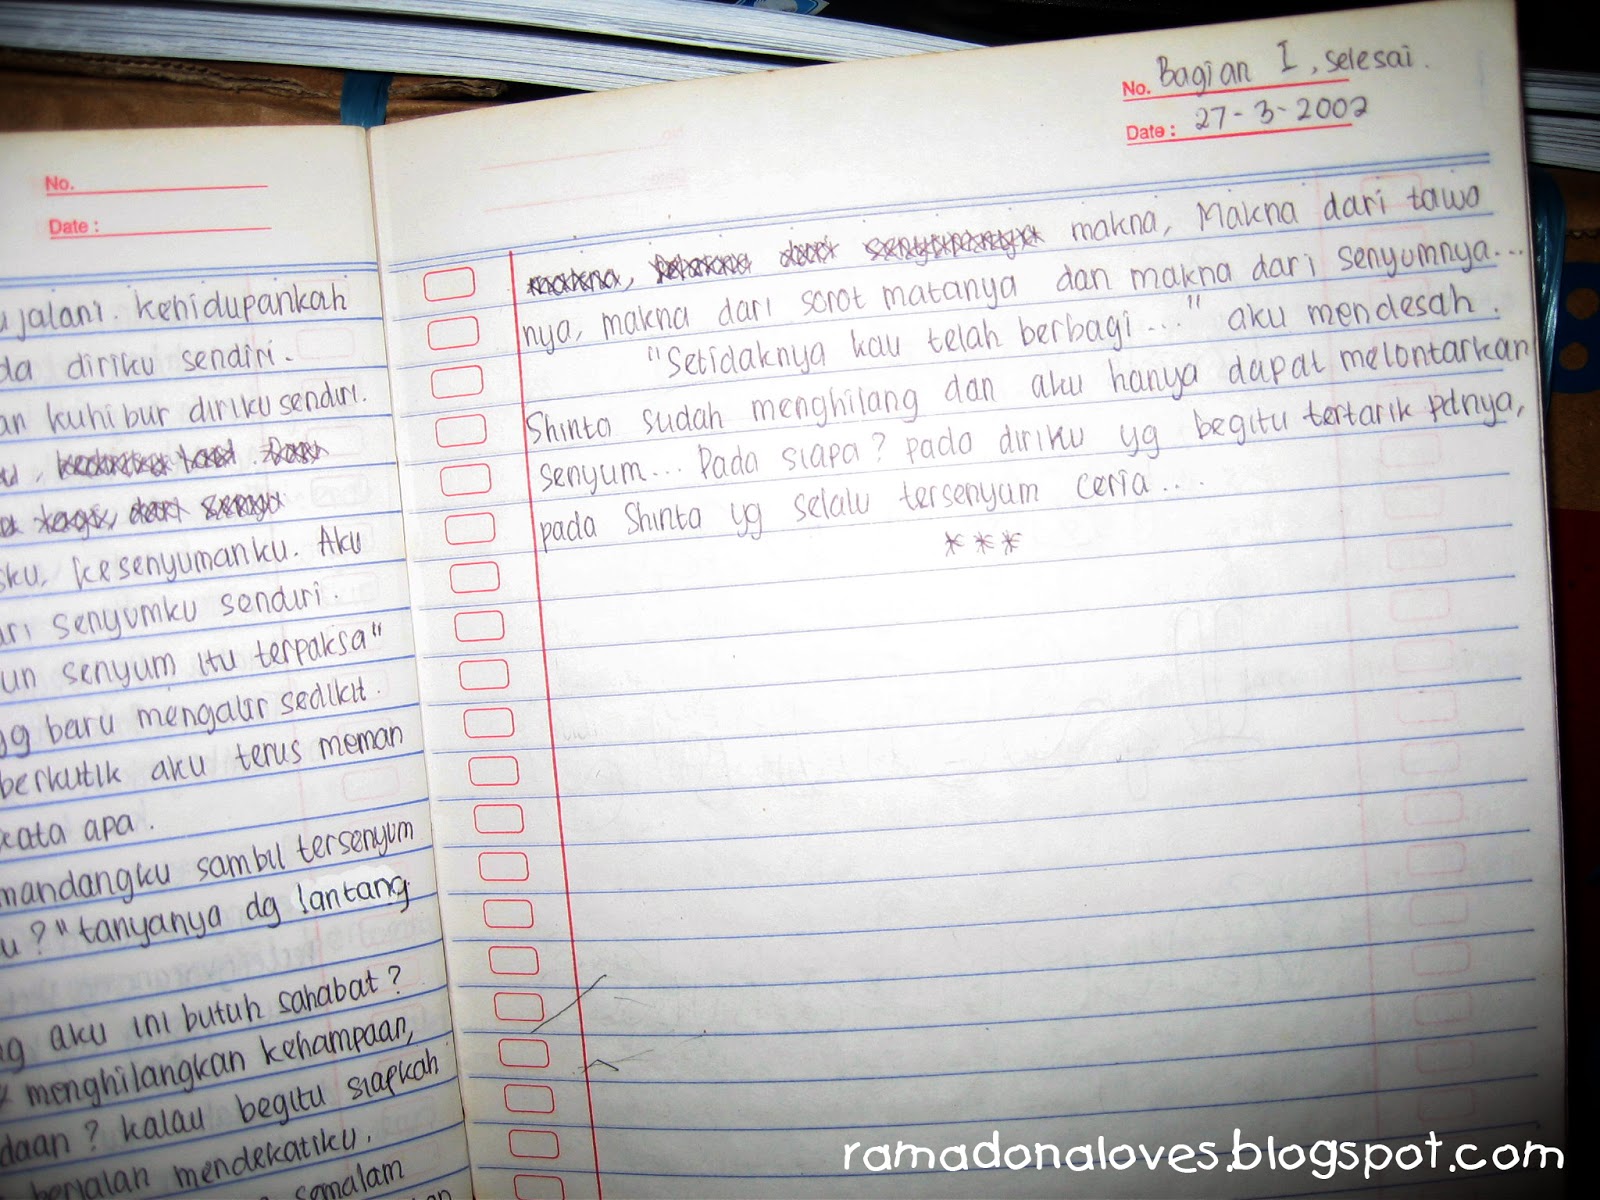 No.
Date :
u jalani. kehidupankah
da diriku sendiri.
an kuhibur diriku sendiri.
sku, kesenyumanku. Aku
ari senyumku sendiri.
un senyum itu terpaksa"
ng baru mengalir sedikit.
berkutik aku terus meman
kata apa.
mandangku sambil tersenyum
u?" tanyanya dg lantang
ng aku ini butuh sahabat?
menghilangkan kehampaan,
daan? kalau begitu siapkah
berjalan mendekatiku.
semalam
No. Bagian I, selesai.
Date : 27-3-2002
makna, Makna dari tawa
nya, makna dari sorot matanya dan makna dari senyumnya...
"Setidaknya kau telah berbagi..." aku mendesah.
Shinta sudah menghilang dan aku hanya dapat melontarkan
senyum... Pada siapa? pada diriku yg begitu tertarik pdnya,
pada Shinta yg selalu tersenyum ceria....
***
ramadonaloves.blogspot.com